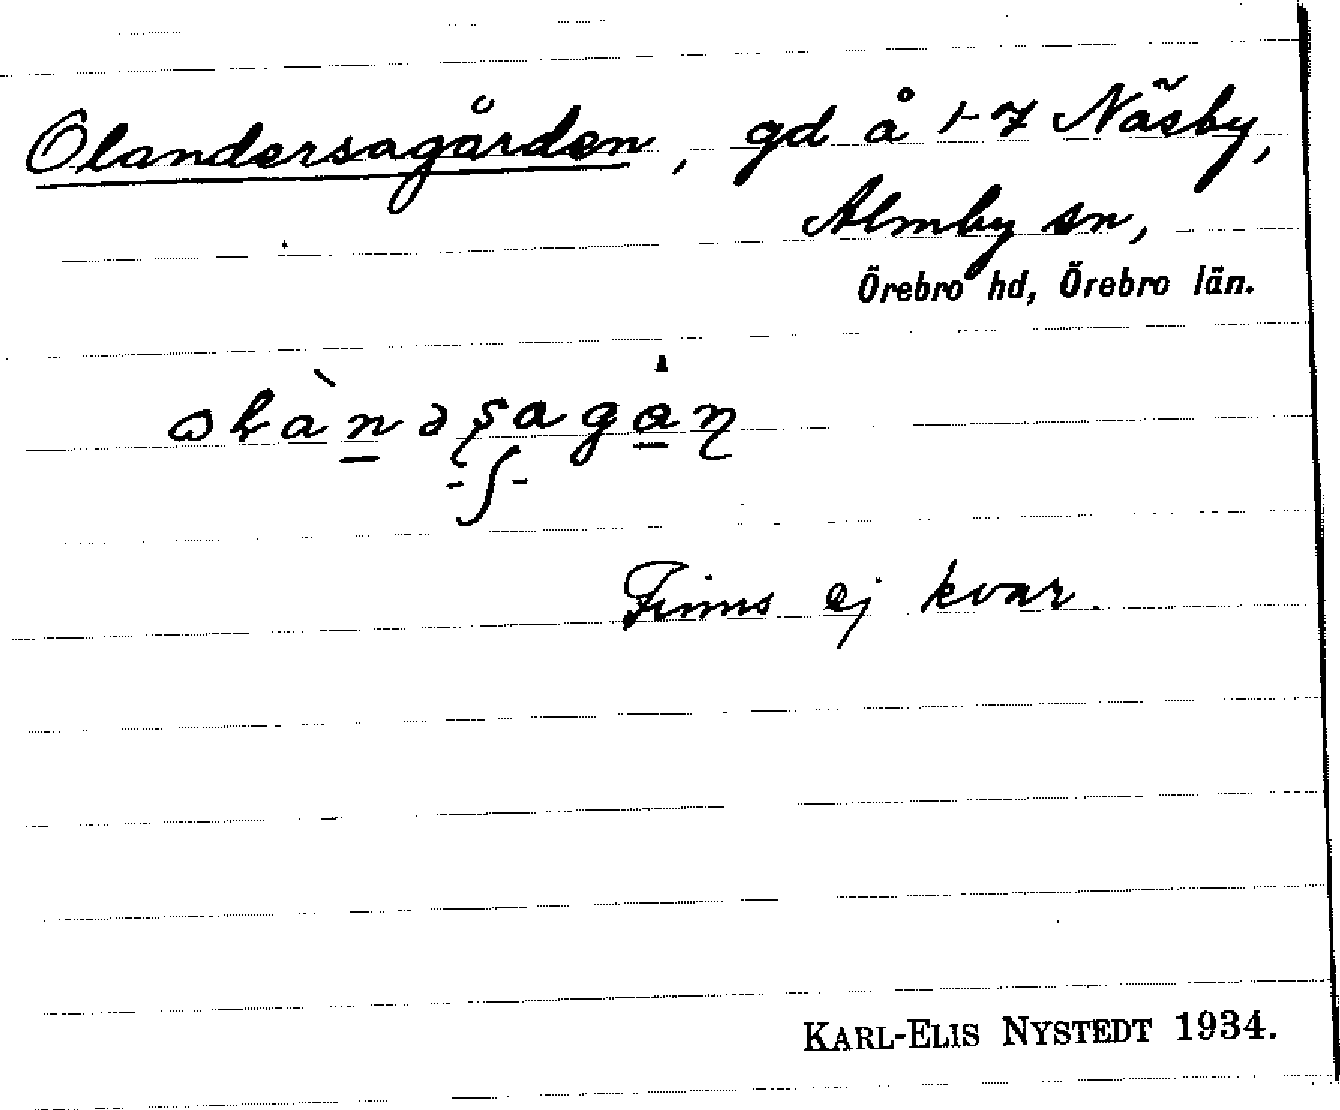 Olandersagården, gd å 1-7 Näsby,
Almby sn,
Örebro hd, Örebro län.
Finns ej kvar.
KARL-ELIS NYSTEDT 1934.